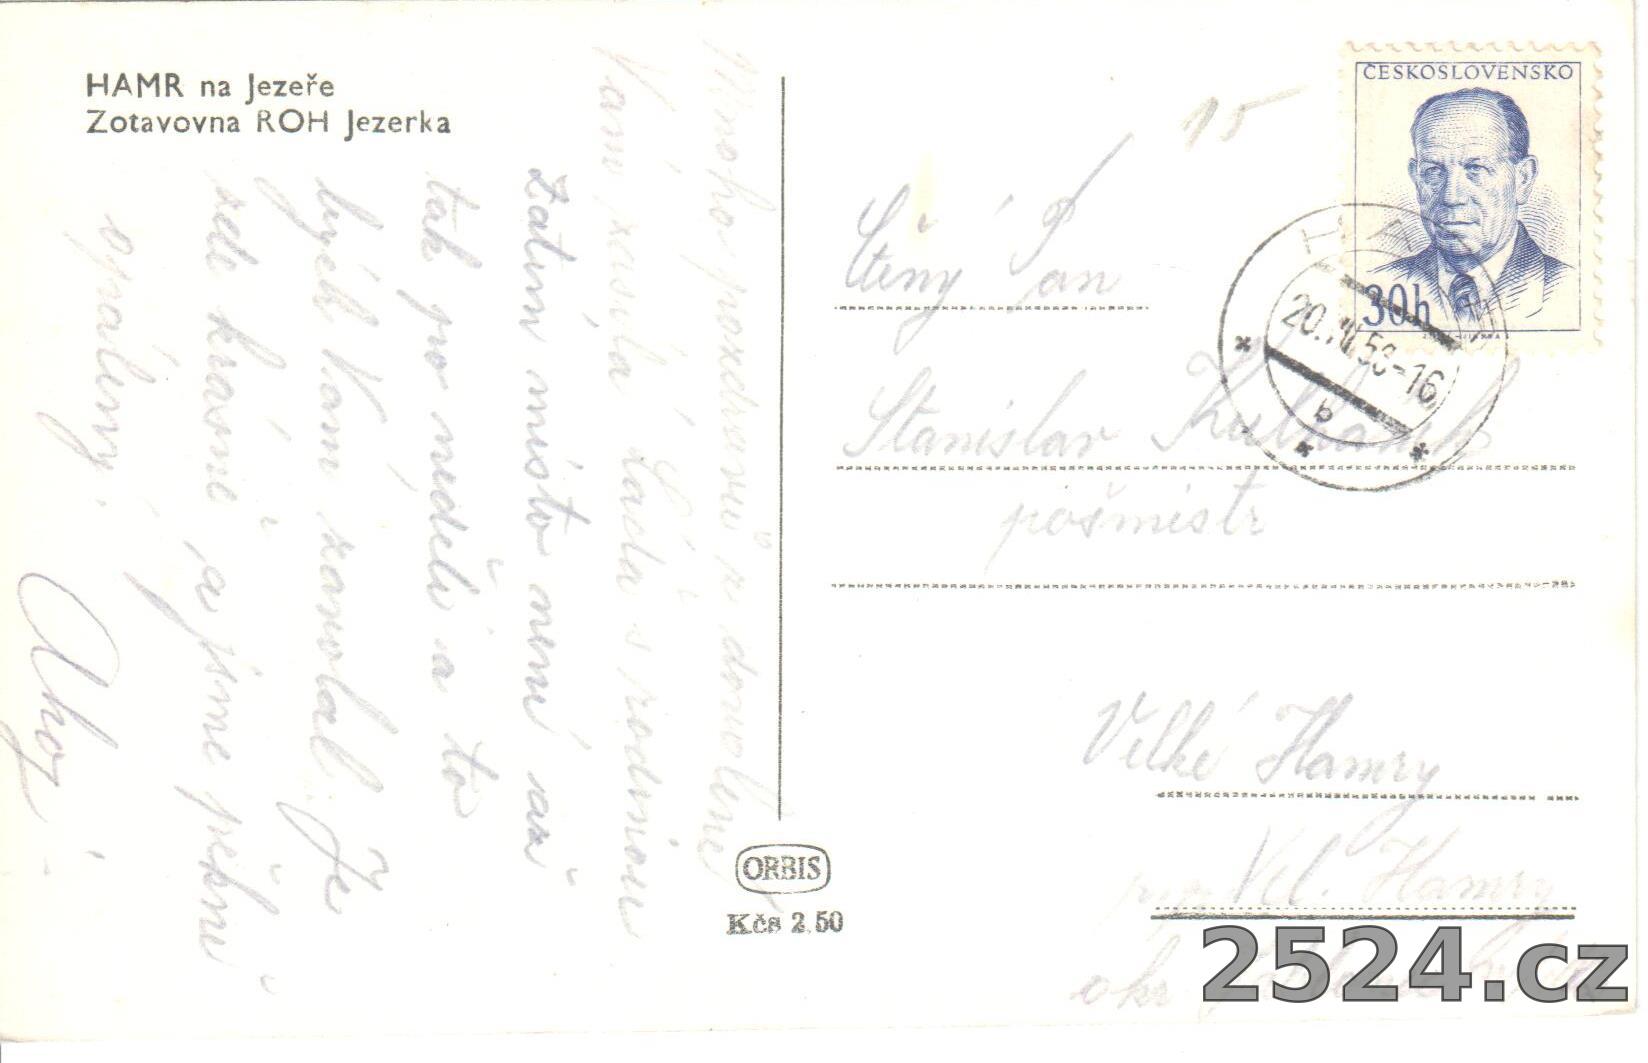 HAMR na Jezeře
Zotavovna ROH Jezerka
Mnoho pozdravů z dovolené
Vám zasílá Láďa s rodinou
Zatím místo není až
tak po neděli a to
bych Vám zavolal. Je
zde krásně, a jsme pěkně
opáleny.
Ahoj
15
ČESKOSLOVENSKO
30h
20. 53-16
b
Ctěný Pan
Stanislav
pošmistr
Velké Hamry
Vel. Hamry
okr
ORBIS
Kčs 2,50
2524.cz